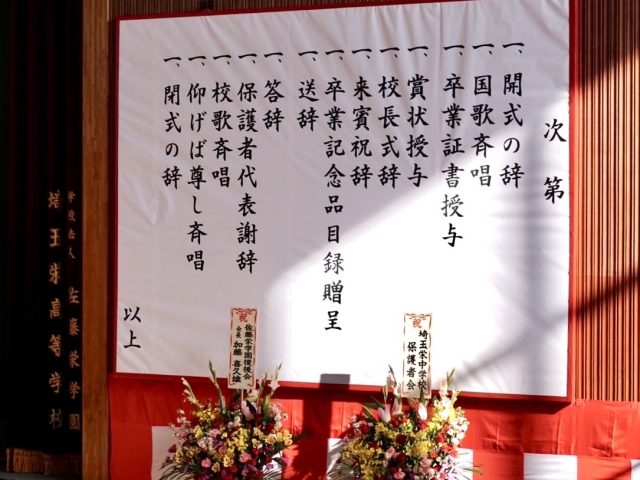 次第
一、開式の辞
一、国歌斉唱
一、卒業証書授与
一、賞状授与
一、校長式辞
一、来賓祝辞
一、卒業記念品目録贈呈
一、送辞
一、答辞
一、保護者代表謝辞
一、校歌斉唱
一、仰げば尊し斉唱
一、閉式の辞
以上
祝
埼玉栄中学校
保護者会
祝
佐藤栄学園後援会
会長 加藤 喜久雄
学校法人 佐藤栄学園
埼玉栄高等学校